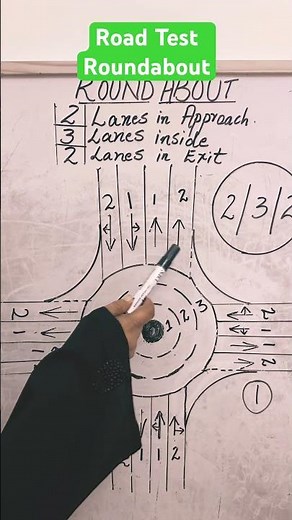 Road Test
Roundabout
ROUND ABOUT
2 Lanes in Approach.
3 Lanes inside
2 Lanes in Exit
2 1 1 2
2/3/2
1 2 3
2
1
1
2
2
1
1
2
1
2 1 1 2